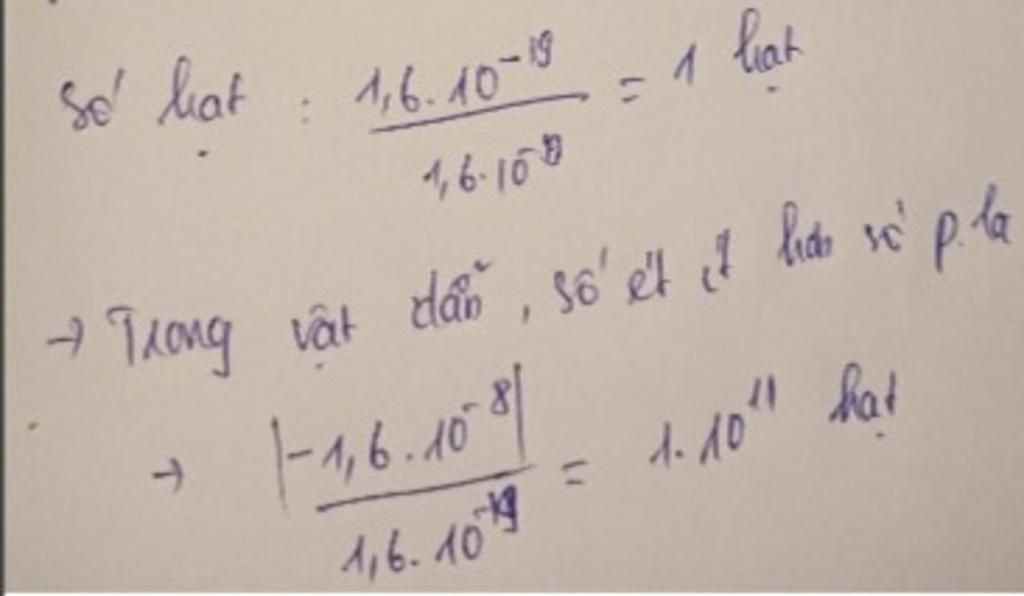 Số hạt : 1,6.10⁻¹⁹ / 1,6.10⁻¹⁹ = 1 hạt
→ Trong vật dẫn, số e ít hơn số p là
→ |-1,6.10⁻⁸| / 1,6.10⁻¹⁹ = 1.10¹¹ hạt